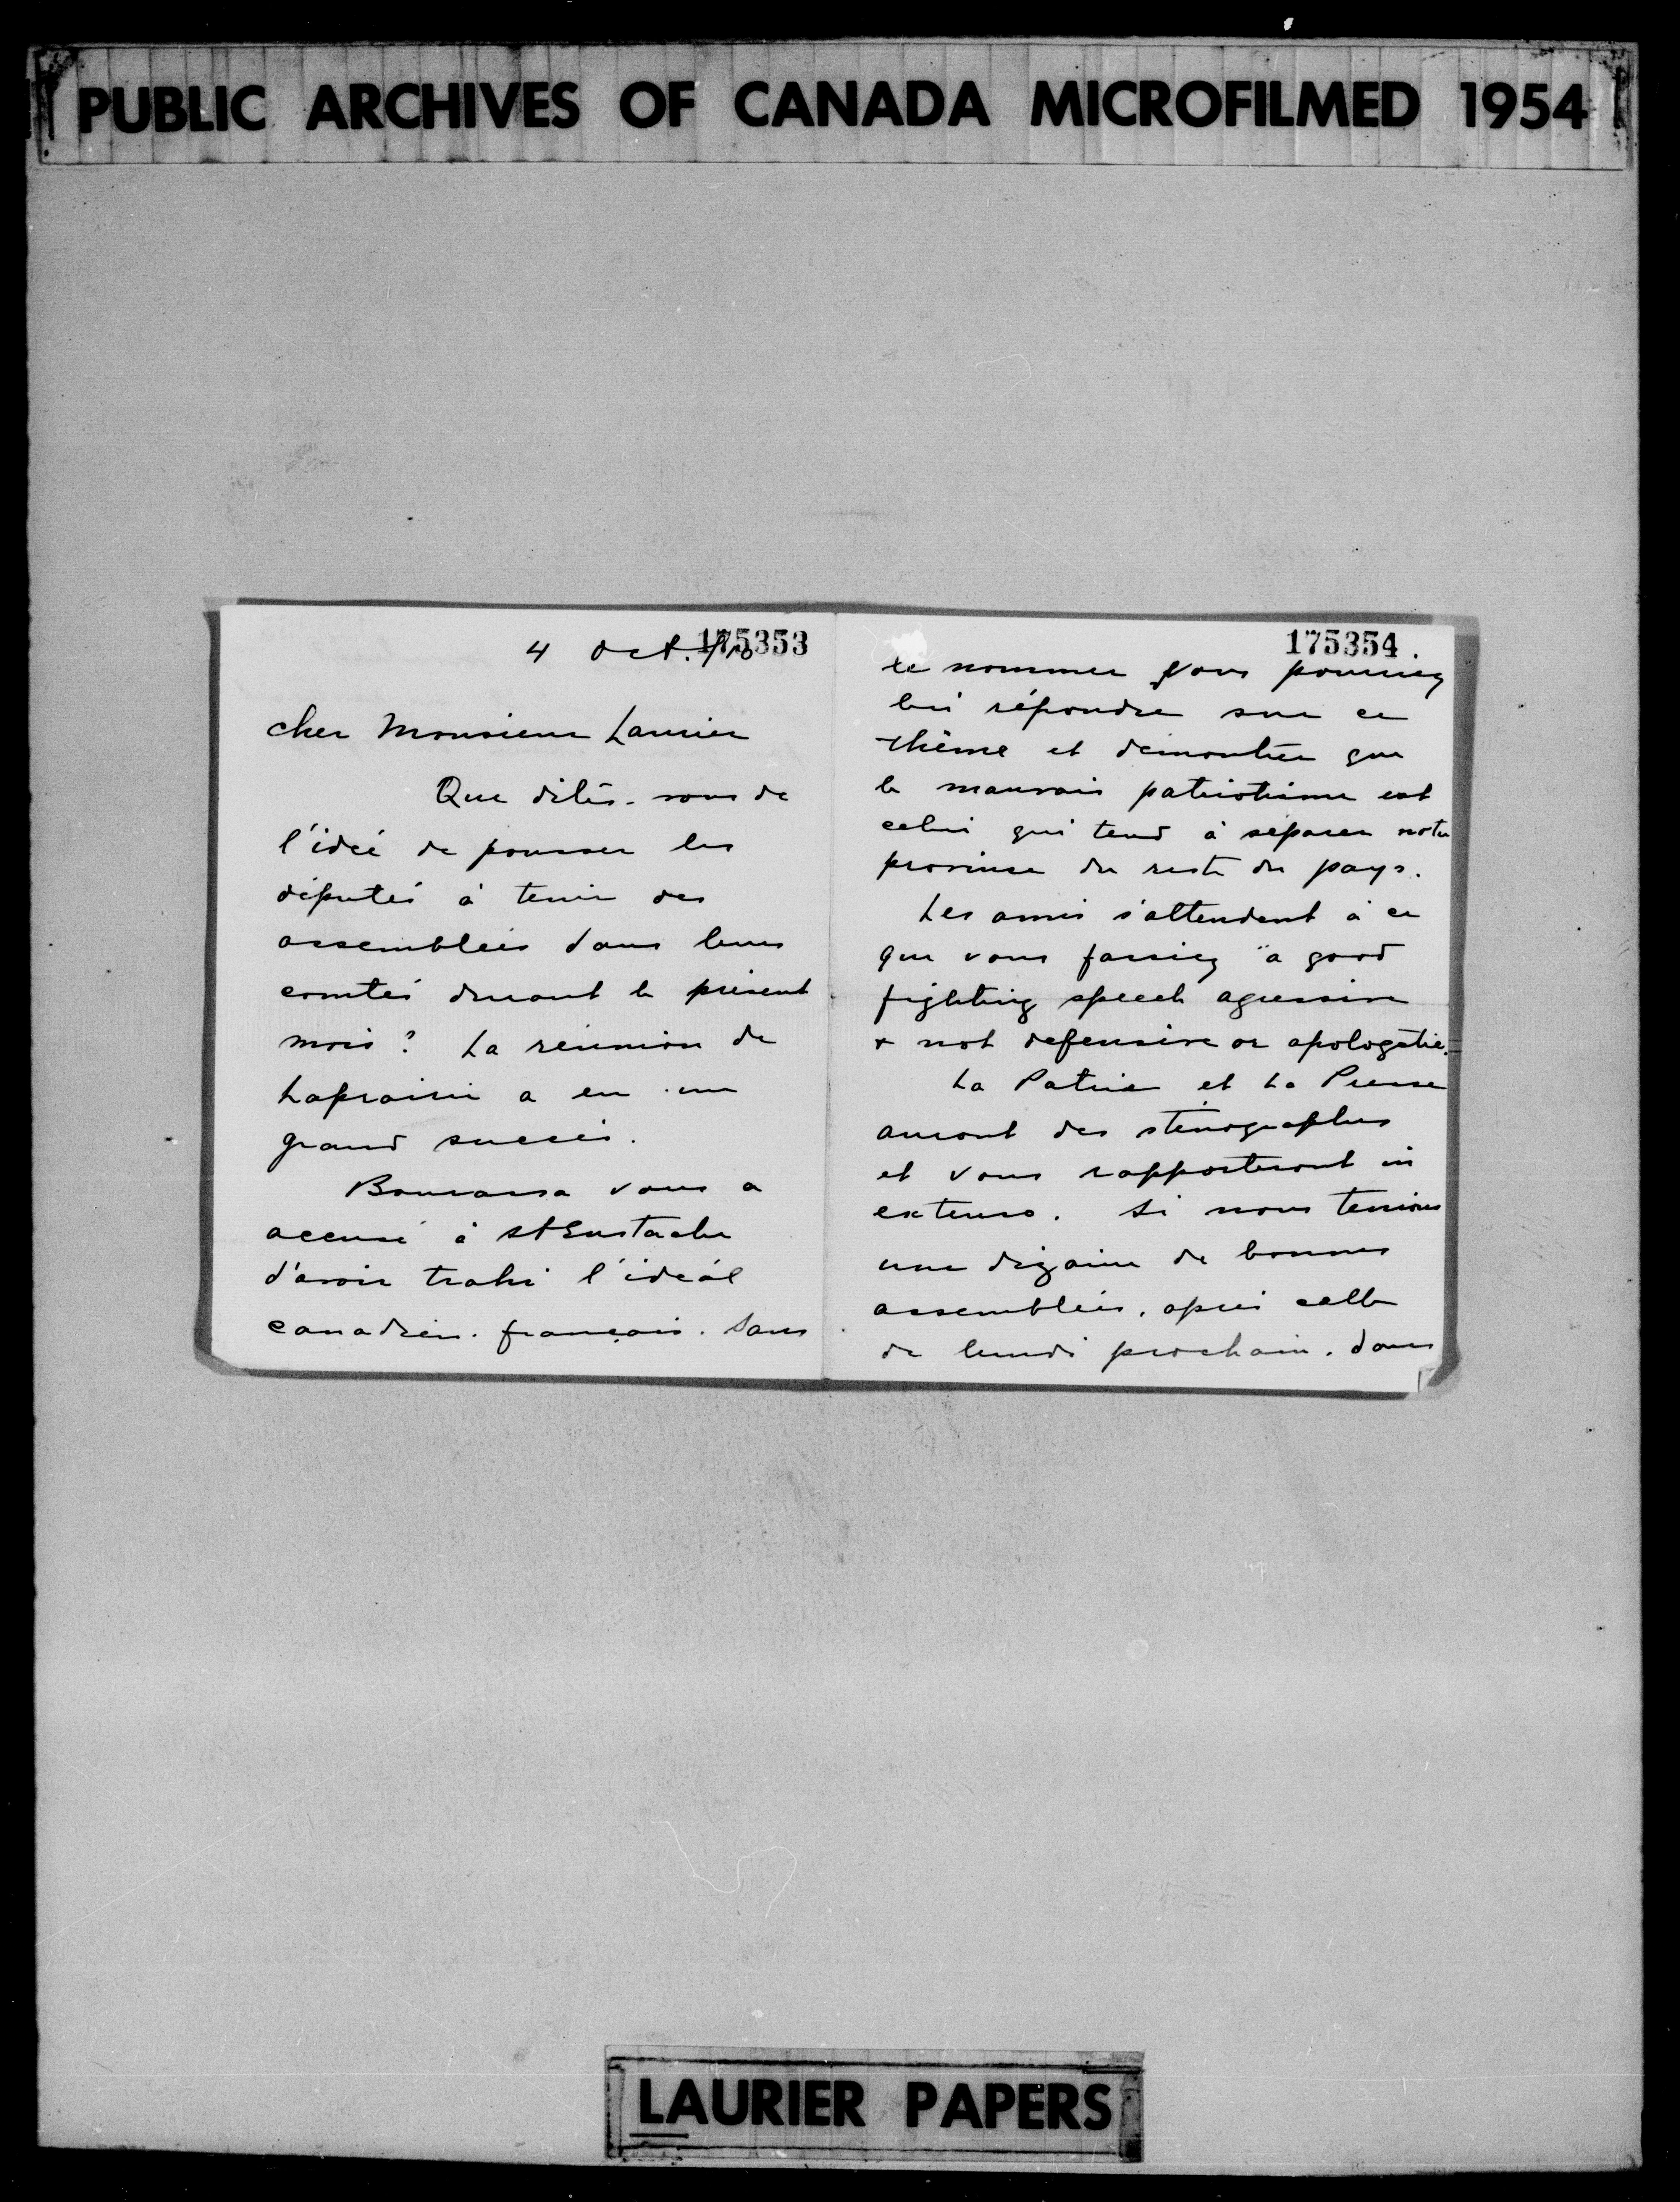 PUBLIC ARCHIVES OF CANADA MICROFILMED 1954
175353
4 Oct. /10
Cher Monsieur Laurier
Que dites-vous de
l'idée de pousser les
députés à tenir des
assemblées dans leurs
comtés durant le présent
mois ? La réunion de
Laprairie a eu un
grand succès.
Bourassa vous a
accusé à St Eustache
d'avoir trahi l'idéal
canadien-français. Sans
175354.
le nommer vous pourriez
lui répondre sur ce
thème et démontrer que
le mauvais patriotisme est
celui qui tend à séparer notre
province du reste du pays.
Les amis s'attendent à ce
que vous fassiez "a good
fighting speech agressive
& not defensive or apologetic.
La Patrie et La Presse
auront des sténographes
et vous rapporteront in
extenso. Si nous tenions
une dizaine de bonnes
assemblées, après celle
de lundi prochain, dans
LAURIER PAPERS